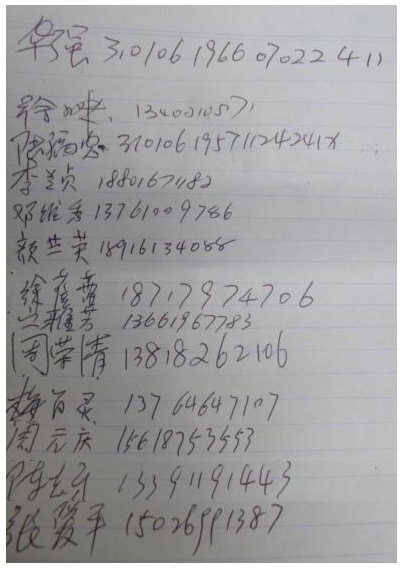 华强 310106 1966 07022411
徐 1340210571
陈 31010619571124241X
李兰贞 18801671182
邓维秀 13761009786
颜兰英 18916134088
徐 18717974706
兰雅芳 13661967783
周荣清 13818262106
梅百灵 13764647107
周元庆 15618753553
陈 13391191443
张爱平 15026991387